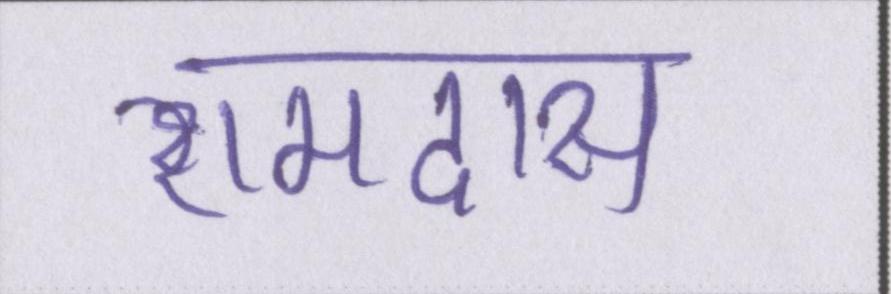 रामदास